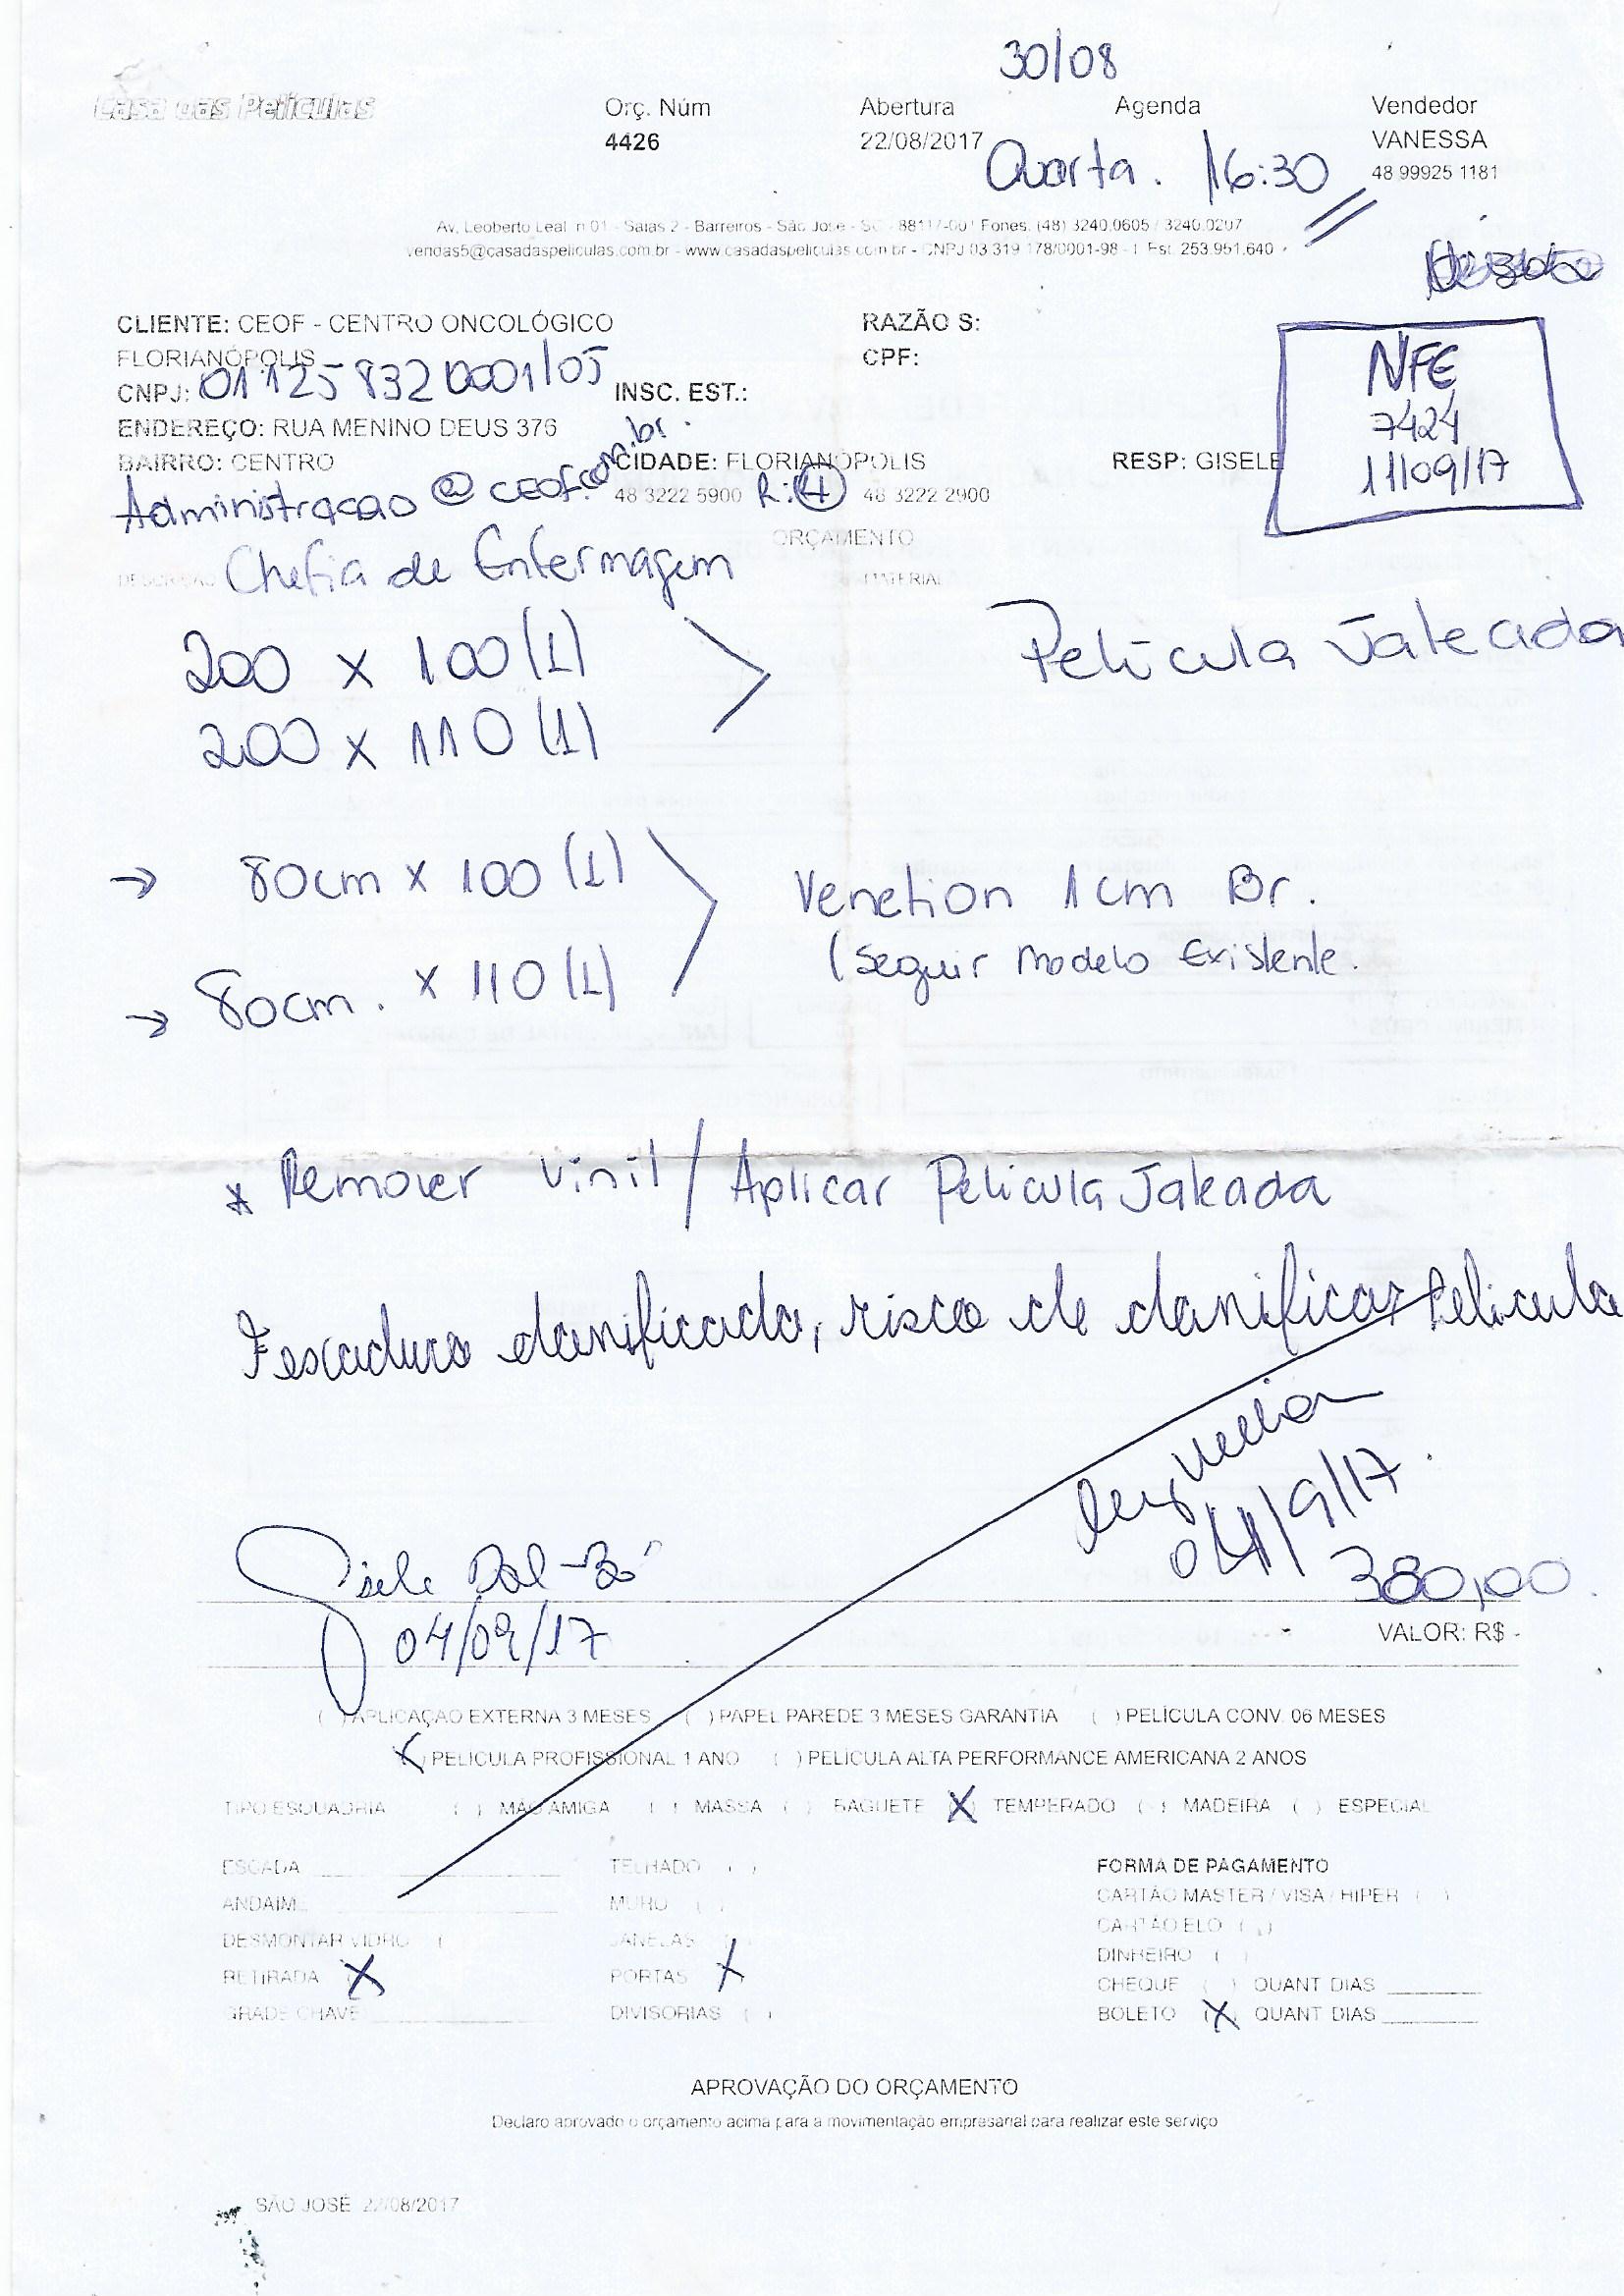 30/08
Casa das Películas
Orç. Núm Abertura Agenda Vendedor
4426 22/08/2017 VANESSA
Quarta. 16:30 48 99925 1181
Av. Leoberto Leal n 01 - Salas 2 - Barreiros - São José - SC - 88117-001 Fones: (48) 3240.0605 / 3240.0207
vendas5@casadaspeliculas.com.br - www.casadaspeliculas.com.br - CNPJ 03 319 178/0001-98 - I. Est. 253.951.640
CLIENTE: CEOF - CENTRO ONCOLÓGICO RAZÃO S:
FLORIANÓPOLIS CPF:
CNPJ: 01125832 0001/05 INSC. EST.:
NFE
7424
11/09/17
ENDEREÇO: RUA MENINO DEUS 376
BAIRRO: CENTRO CIDADE: FLORIANÓPOLIS RESP: GISELE
Administracao @ CEOF.com.br. 48 3222 5900 R: 4 48 3222 2900
ORÇAMENTO
DESCRIÇÃO Chefia de Enfermagem MATERIAL
200 x 100 (1) Película Jateada
200 x 110 (1)
→ 80cm x 100 (1) Venetion 1cm Br.
→ 80cm. x 110 (1) (Seguir modelo Existente.
* Remover Vinil / Aplicar Pelicula Jateada
danificada, risco de danificar Pelicula
04/9/17
Gisele Dal-Bó 380,00.
04/09/17 VALOR: R$ -
( ) APLICAÇÃO EXTERNA 3 MESES ( ) PAPEL PAREDE 3 MESES GARANTIA ( ) PELÍCULA CONV. 06 MESES
(X) PELÍCULA PROFISSIONAL 1 ANO ( ) PELÍCULA ALTA PERFORMANCE AMERICANA 2 ANOS
TIPO ESQUADRIA ( ) MÃO AMIGA ( ) MASSA ( ) BAGUETE (X) TEMPERADO ( ) MADEIRA ( ) ESPECIAL
ESCADA TELHADO ( ) FORMA DE PAGAMENTO
ANDAIM MURO ( ) CARTÃO MASTER / VISA / HIPER ( )
DESMONTAR VIDRO ( JANELAS CARTÃO ELO ( )
RETIRADA X PORTAS X DINHEIRO ( )
GRADE CHAVE DIVISORIAS ( ) CHEQUE ( ) QUANT DIAS
BOLETO (X) QUANT DIAS
APROVAÇÃO DO ORÇAMENTO
Declaro aprovado o orçamento acima para a movimentação empresarial para realizar este serviço
SÃO JOSÉ 22/08/2017